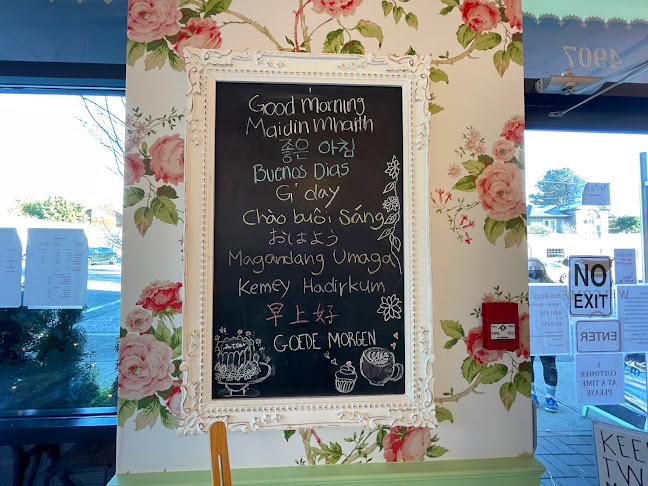 Good Morning
Maidin Mhaith
좋은 아침
Buenos Dias
G'day
Chào buổi Sáng
おはよう
Magandang Umaga
Kemey Hadirkum
早上好
GOEDE MORGEN
4907
NO
EXIT
ENTER
1
CUSTOMER
AT A TIME
PLEASE
KEEP
TW